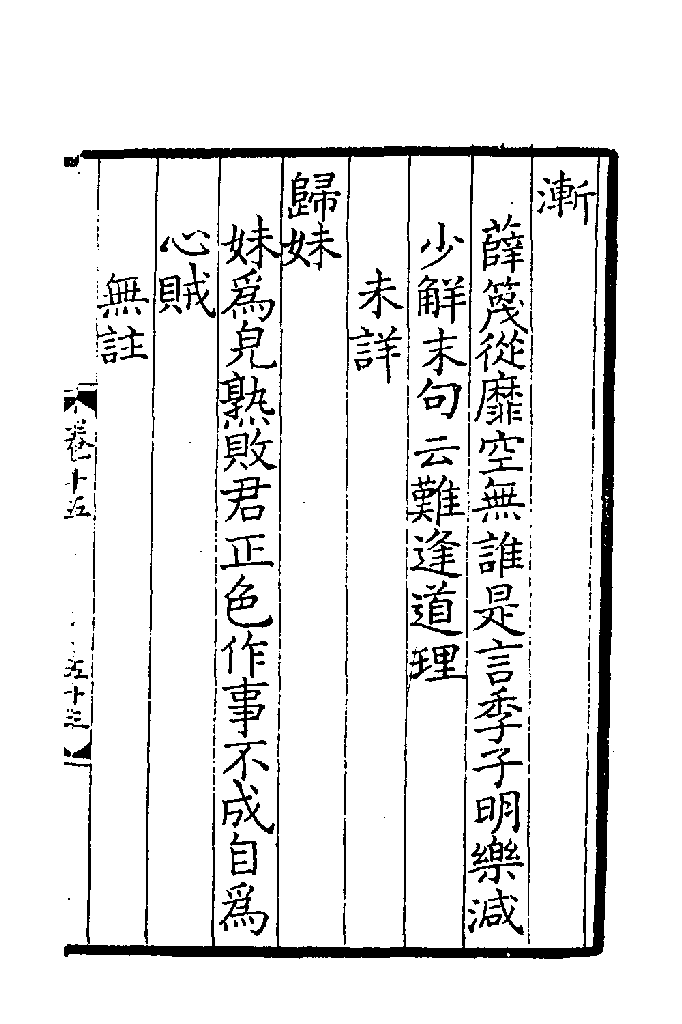 漸
薛篾從靡空無誰是言季子明樂減
少解末句云難逢道理
未詳
歸妹
妹爲皃熟敗君正色作事不成自爲
心賊
無註
卷十五
五十三